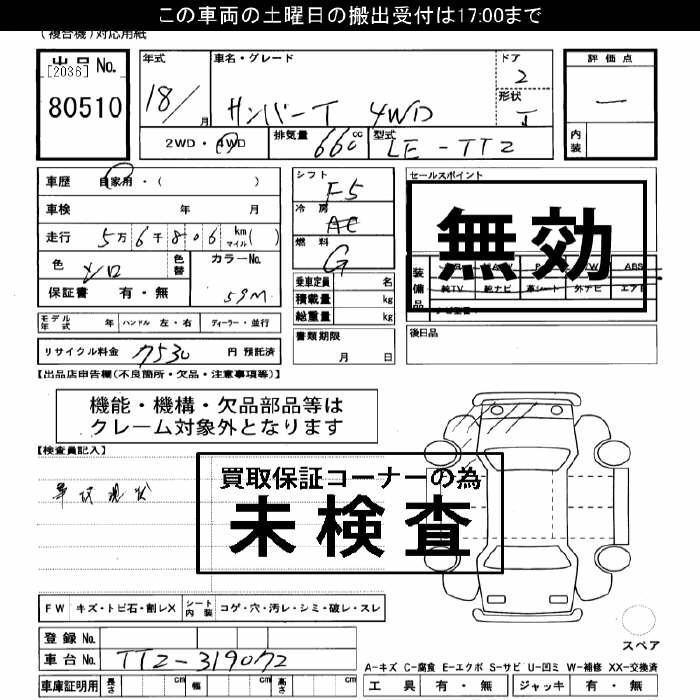 この車両の土曜日の搬出受付は17:00まで
(複合機)対応用紙
出品 No.
[2036]
80510
年式
18/
月
車名・グレード
サンバーT 4WD
ドア
2
形状
評価点
―
内装
2WD・4WD
排気量
660 cc
型式
LE-TT2
車歴
自家用・( )
車検
年 月
走行
5万6千806 km マイル( )
色
色替
カラーNo.
59M
保証書
有・無
シフト
F5
冷房
AC
燃料
G
乗車定員
名
積載量
kg
総重量
kg
セールスポイント
無効
装備品
ABS
純TV
純ナビ
革シート
外ナビ
エアB
モデル年式
年
ハンドル
左・右
ディーラー・並行
リサイクル料金
7530
円 預託済
書類期限
月 日
後日品
【出品店申告欄(不良箇所・欠品・注意事項等)】
機能・機構・欠品部品等は
クレーム対象外となります
【検査員記入】
車両現状
買取保証コーナーの為
未検査
FW キズ・トビ石・割レX
シート内装
コゲ・穴・汚レ・シミ・破レ・スレ
登録 No.
車台 No.
TT2-319072
車庫証明用
長さ
cm
幅
cm
高さ
cm
スペア
A-キズ C-腐食 E-エクボ S-サビ U-凹ミ W-補修 XX-交換済
工具
有・無
ジャッキ
有・無